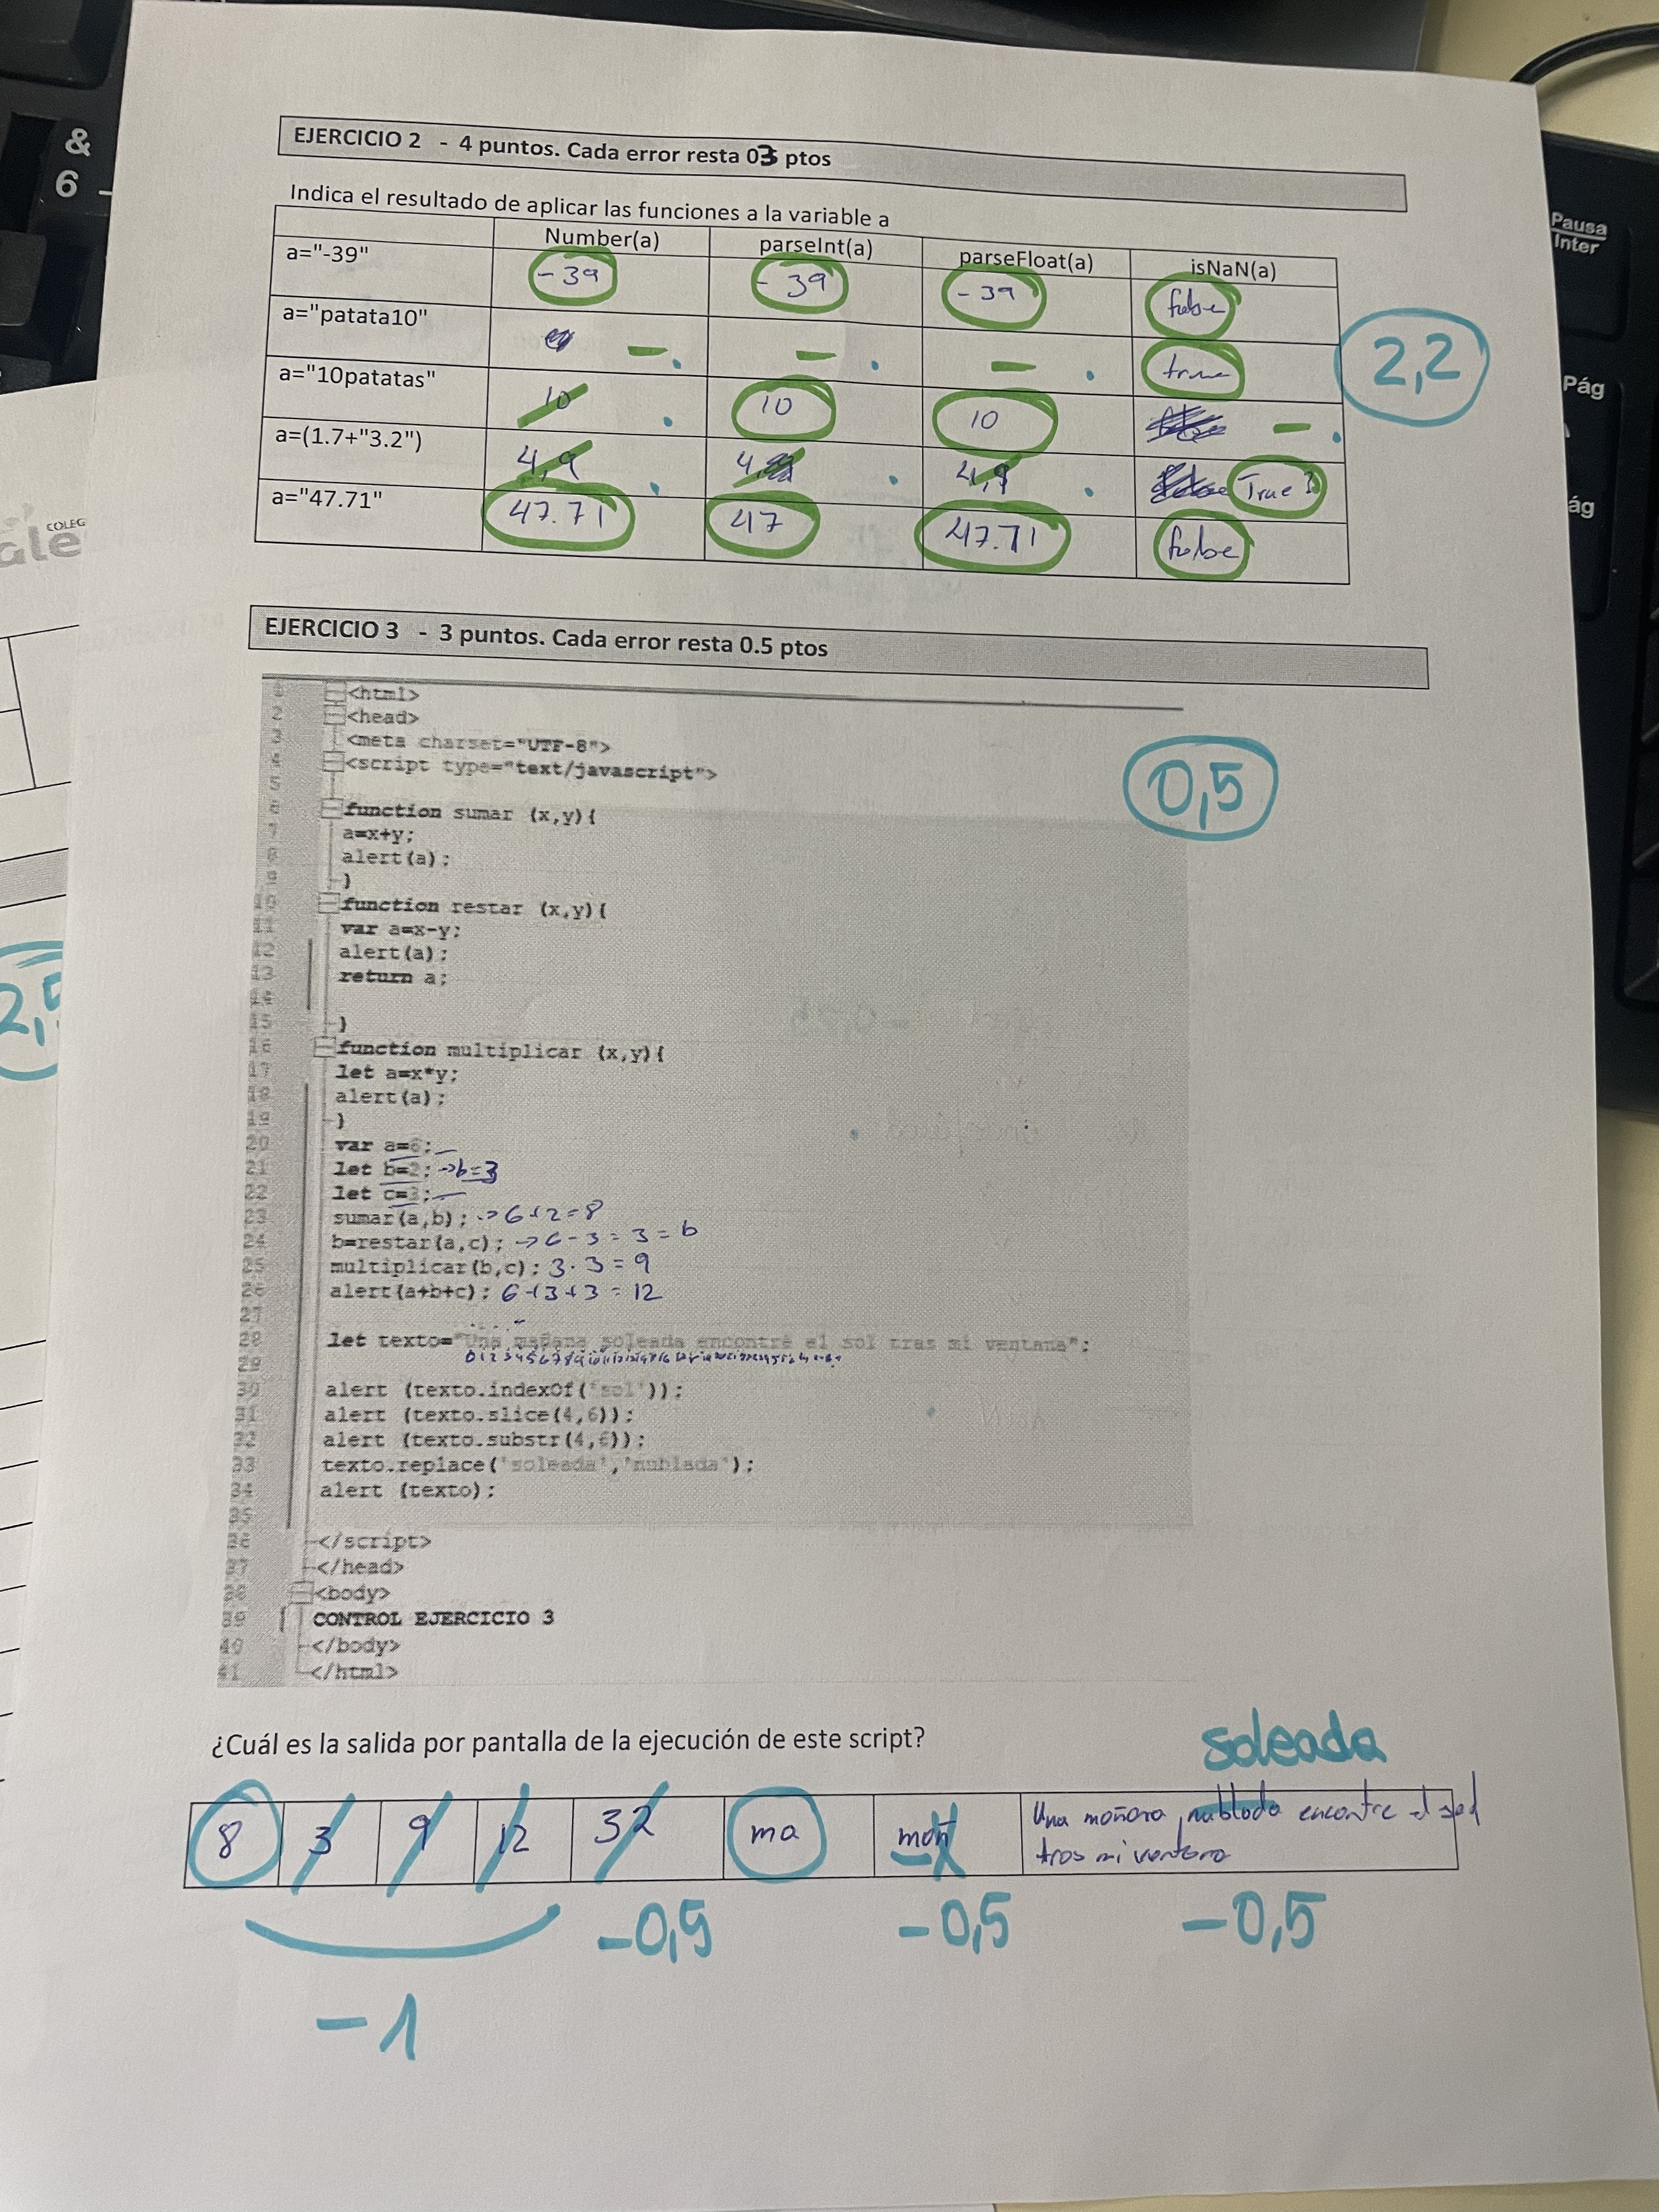 &
6 -
Pausa
Inter
Pág
ág
COLEG
ale
2,5
EJERCICIO 2 - 4 puntos. Cada error resta 03 ptos
Indica el resultado de aplicar las funciones a la variable a
Number(a) parseInt(a) parseFloat(a) isNaN(a)
a="-39" -39 -39 -39 false
a="patata10" - - - true
2,2
a="10patatas" 10 10 10 -
a=(1.7+"3.2") 4,9 4, 4,9 True?
a="47.71" 47.71 47 47.71 false
EJERCICIO 3 - 3 puntos. Cada error resta 0.5 ptos
0,5
1 <html>
2 <head>
3 <meta charset="UTF-8">
4 <script type="text/javascript">
5
6 function sumar (x,y){
7 a=x+y;
8 alert(a);
9 }
10 function restar (x,y){
11 var a=x-y;
12 alert(a);
13 return a;
14
15 }
16 function multiplicar (x,y){
17 let a=x*y;
18 alert(a);
19 }
20 var a=6;
21 let b=2; →b=3
22 let c=3;
23 sumar(a,b); → 6+2=8
24 b=restar(a,c); → 6-3=3=b
25 multiplicar(b,c); 3·3=9
26 alert(a+b+c); 6+3+3=12
27
28 let texto="Una mañana soleada encontré el sol tras mi ventana";
29
30 alert (texto.indexOf('sol'));
31 alert (texto.slice(4,6));
32 alert (texto.substr(4,6));
33 texto.replace('soleada','nublada');
34 alert (texto);
35
36 </script>
37 </head>
38 <body>
39 CONTROL EJERCICIO 3
40 </body>
41 </html>
¿Cuál es la salida por pantalla de la ejecución de este script?
soleada
8 3 9 12 32 ma mañ Una mañana nublada encontre el sol
tras mi ventana
-0,5 -0,5 -0,5
-1